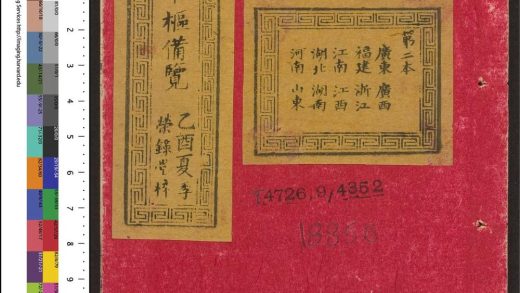 樞備覽
乙酉夏季
榮錄堂梓
第二本
廣東 廣西
福建 浙江
江南 江西
湖北 湖南
河南 山東
T4726.9/4352
13856
2
3
4
5
6
7
8
9